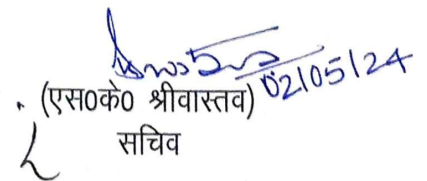 02/05/24
(एस0के0 श्रीवास्तव)
सचिव